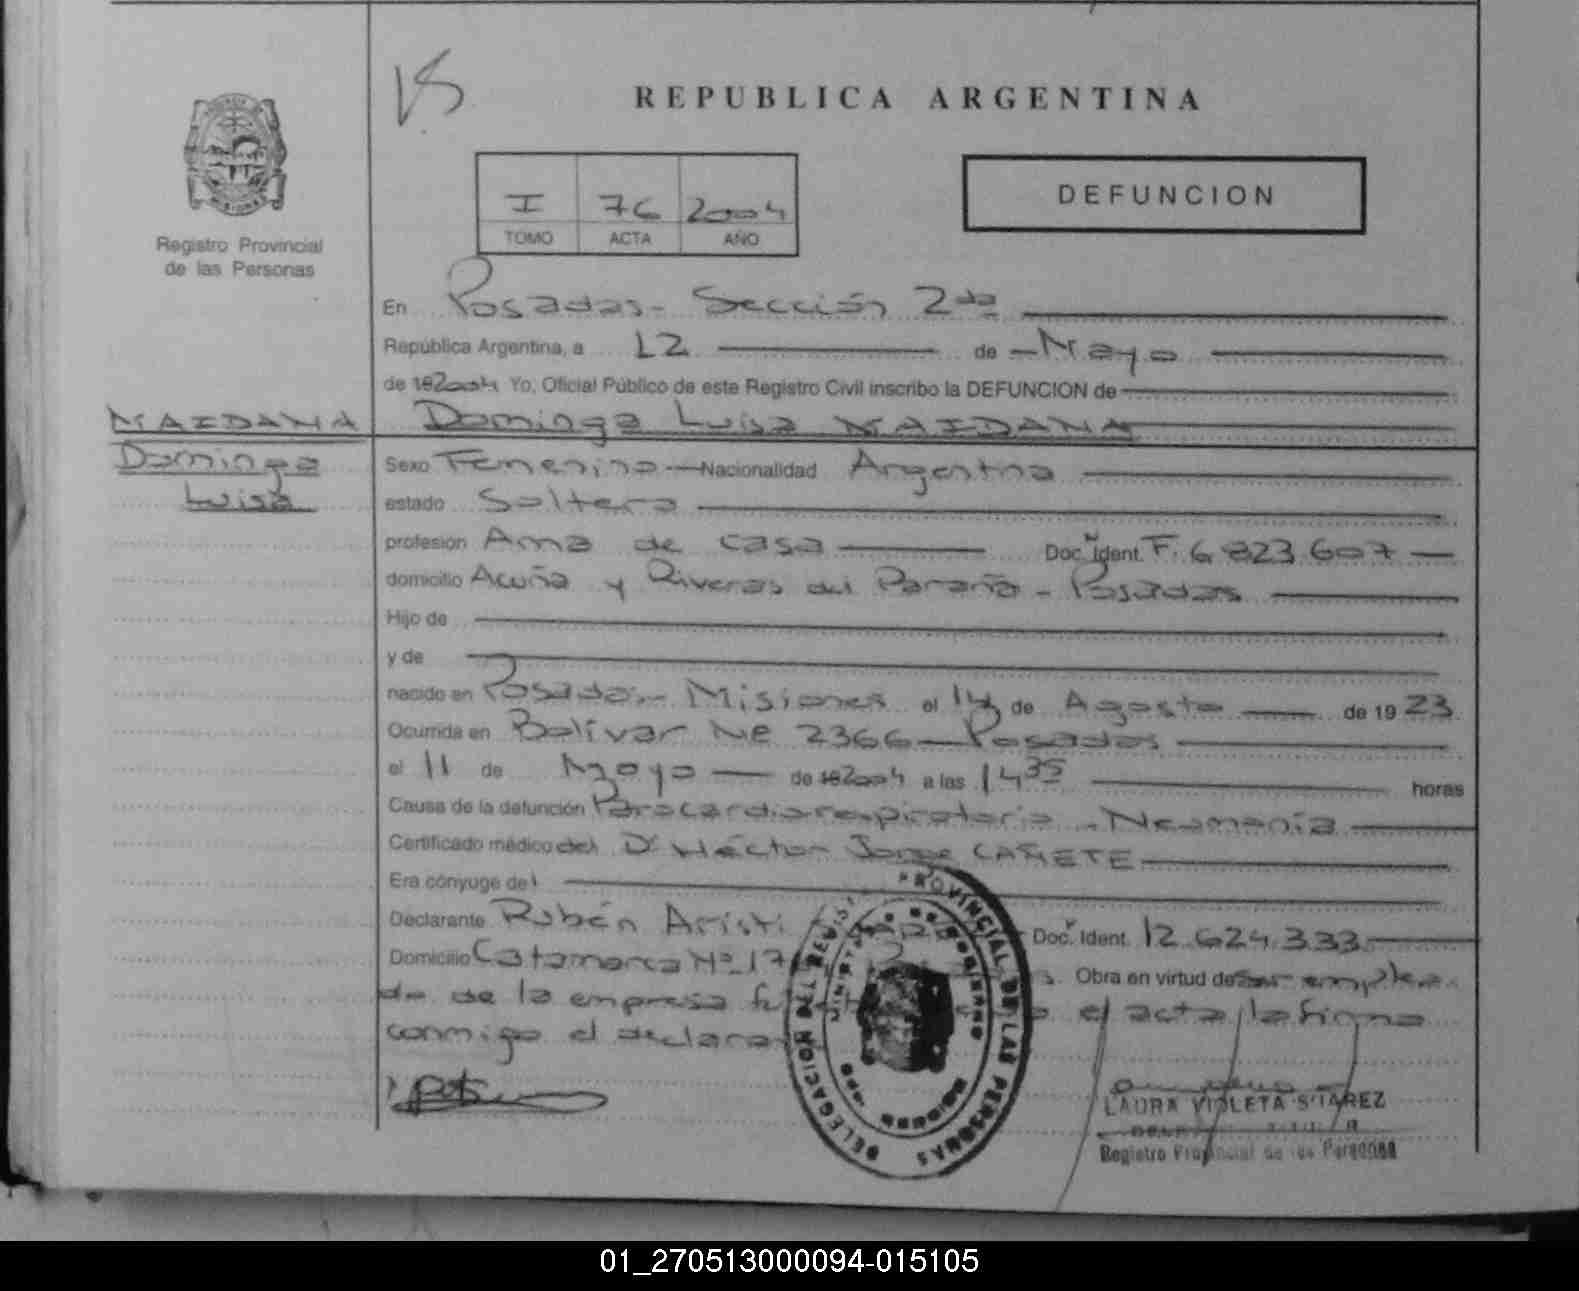 REPUBLICA ARGENTINA
Registro Provincial
de las Personas
I 76 2004
TOMO ACTA AÑO
DEFUNCION
En Posadas - Sección 2da
República Argentina, a 12 de Mayo
de 2004 Yo, Oficial Público de este Registro Civil inscribo la DEFUNCION de
Dominga Luisa MAIDANA
MAIDANA
Dominga
Luisa
Sexo Femenino Nacionalidad Argentina
estado Soltera
profesión Ama de casa Doc. Ident. F. 6.823.607
domicilio Acuña y Riveras del Paraná - Posadas
Hijo de
y de
nacido en Posadas - Misiones el 14 de Agosto de 1923
Ocurrida en Bolívar Nº 2366 - Posadas
el 11 de Mayo de 2004 a las 14 35 horas
Causa de la defunción Parocardiorespiratorio - Neumonía
Certificado médico del Dr Héctor Jorge CAÑETE
Era cónyuge de
Declarante Rubén Doc. Ident. 12.624.333
Domicilio Catamarca Nº Obra en virtud de ser emplea
do de la empresa el acta la firma
conmigo el
DELEGACION DEL REGISTRO PROVINCIAL DE LAS PERSONAS
LAURA VIOLETA SUAREZ
Registro Provincial de las Personas
01_270513000094-015105